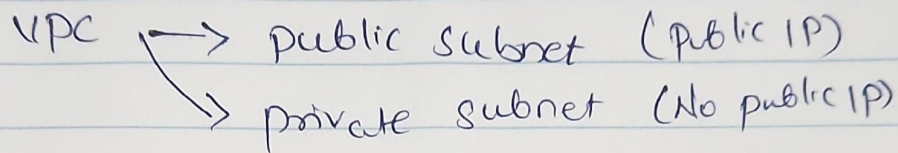 VPC → public subnet (public IP)
→ private subnet (No public IP)